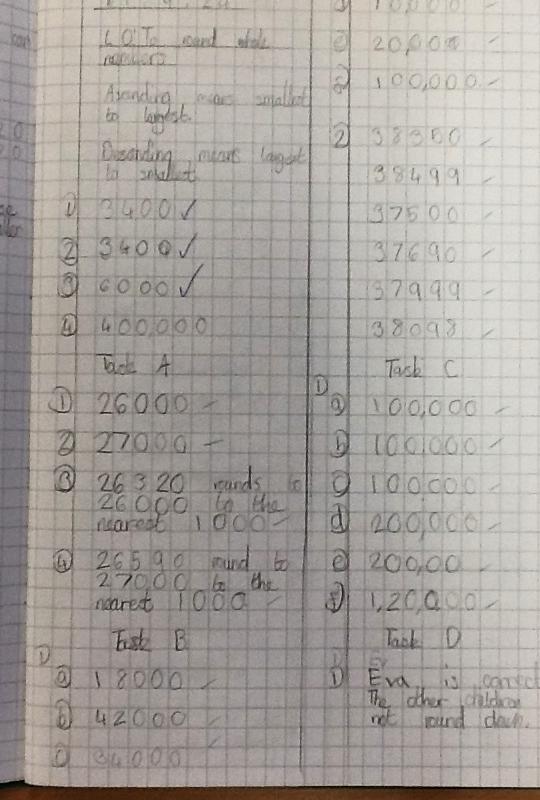 L.O: To round whole
numbers.
Ascending means smallest
to largest.
Descending means largest
to smallest.
① 3400 ✓
② 3400 ✓
③ 6000 ✓
④ 400,000
Task A
① 26000
② 27000
③ 26320 rounds to
26000 to the
nearest 1000
④ 26590 round to
27000 to the
nearest 1000
Task B
①
ⓐ 18000
ⓑ 42000
ⓒ 34000
20,000
100,000
② 38350
38499
37500
37690
37999
38098
Task C
①
ⓐ 100,000
ⓑ 100,000
ⓒ 100000
ⓓ 200,000
ⓔ 200,00
ⓕ 1,20,000
Task D
① Eva is correct
The other children
not round down.